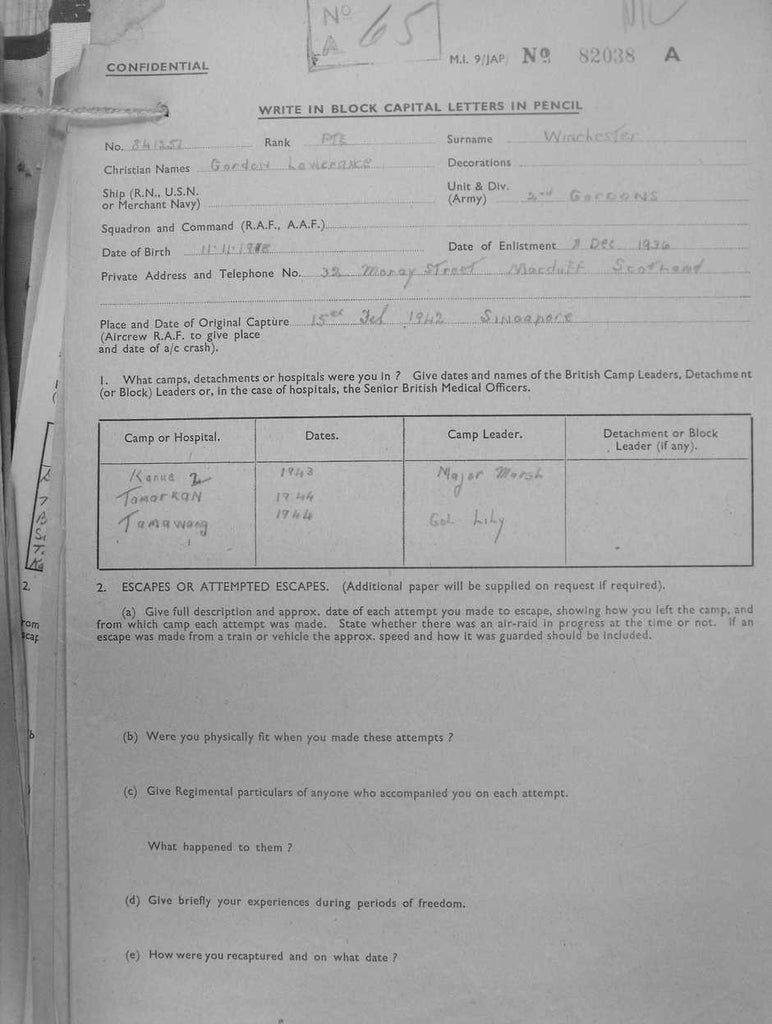 Nº 65
A
CONFIDENTIAL
M.I. 9/JAP Nº 82038 A
WRITE IN BLOCK CAPITAL LETTERS IN PENCIL
No. Rank PTE Surname Winchester
Christian Names Gordon Decorations
Ship (R.N., U.S.N. or Merchant Navy)
Unit & Div. (Army) 2nd GORDONS
Squadron and Command (R.A.F., A.A.F.)
Date of Birth 11.11.1918 Date of Enlistment 8 Dec 1936
Private Address and Telephone No. 32 Moray Street Macduff Scotland
Place and Date of Original Capture 15th Feb 1942 Singapore
(Aircrew R.A.F. to give place
and date of a/c crash).
1. What camps, detachments or hospitals were you in ? Give dates and names of the British Camp Leaders, Detachment
(or Block) Leaders or, in the case of hospitals, the Senior British Medical Officers.
Camp or Hospital. Dates. Camp Leader. Detachment or Block Leader (if any).
Kanua 2 1943 Major Marsh
Tamarkan 1944
Tamawang 1944 Col Lily
2. ESCAPES OR ATTEMPTED ESCAPES. (Additional paper will be supplied on request if required).
(a) Give full description and approx. date of each attempt you made to escape, showing how you left the camp, and
from which camp each attempt was made. State whether there was an air-raid in progress at the time or not. If an
escape was made from a train or vehicle the approx. speed and how it was guarded should be included.
(b) Were you physically fit when you made these attempts ?
(c) Give Regimental particulars of anyone who accompanied you on each attempt.
What happened to them ?
(d) Give briefly your experiences during periods of freedom.
(e) How were you recaptured and on what date ?